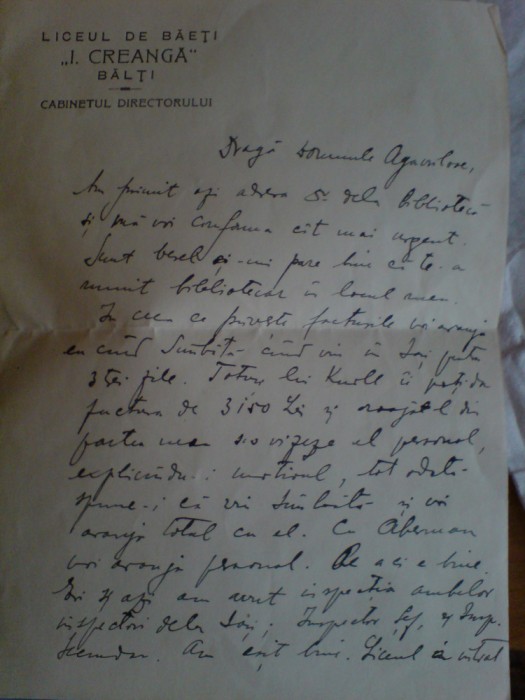 LICEUL DE BĂEȚI
„I. CREANGĂ"
BĂLȚI
CABINETUL DIRECTORULUI
Dragă Domnule Agavriloae,
Am primit azi adresa D. dela bibliotecă
și mă voi conforma cît mai urgent.
Sunt vesel și-mi pare bine că te-a
numit bibliotecar în locul meu.
În ceea ce privește facturile voi aranja
eu când Sâmbătă când vin în Iași pentru
zile. Totuși lui îi poți da
factura de 3150 Lei și din
partea mea s-o vizeze el personal,
explicându-i motivul, tot odată
spune-i că vin Sâmbătă și voi
aranja total cu el. Cu Aberman
voi aranja personal. De aci e bine.
Eri și azi am avut inspecția ambilor
inspectori dela Iași; Inspector Șef, și Insp.
Secundar. Am eșit bine. Liceul a intrat